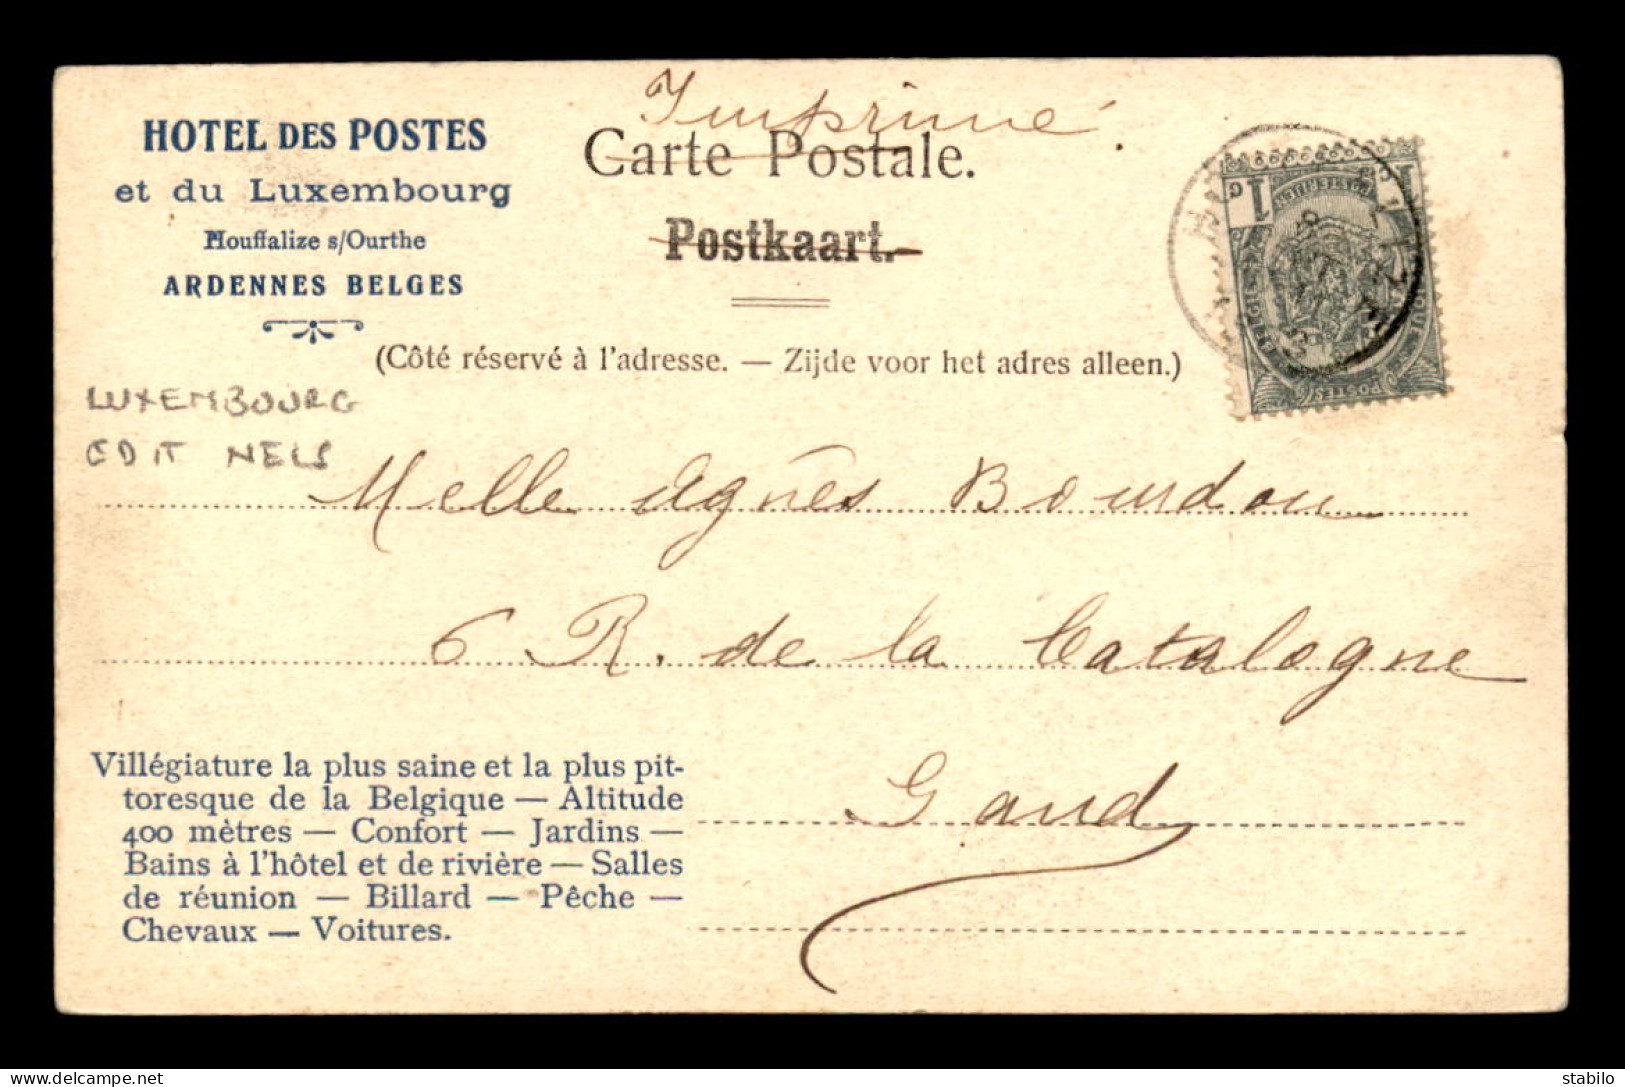 HOTEL DES POSTES
et du Luxembourg
Houffalize s/Ourthe
ARDENNES BELGES
Imprimé
Carte Postale.
Postkaart.
(Côté réservé à l'adresse. — Zijde voor het adres alleen.)
1 C
1 G
POSTERIJEN
POSTES
LUXEMBOURG
EDIT NELS
Melle Agnès Bourdon
6 R. de la Catalogne
Gand
Villégiature la plus saine et la plus pit-
toresque de la Belgique — Altitude
400 mètres — Confort — Jardins —
Bains à l'hôtel et de rivière — Salles
de réunion — Billard — Pêche —
Chevaux — Voitures.
delcampe.net
stabilo